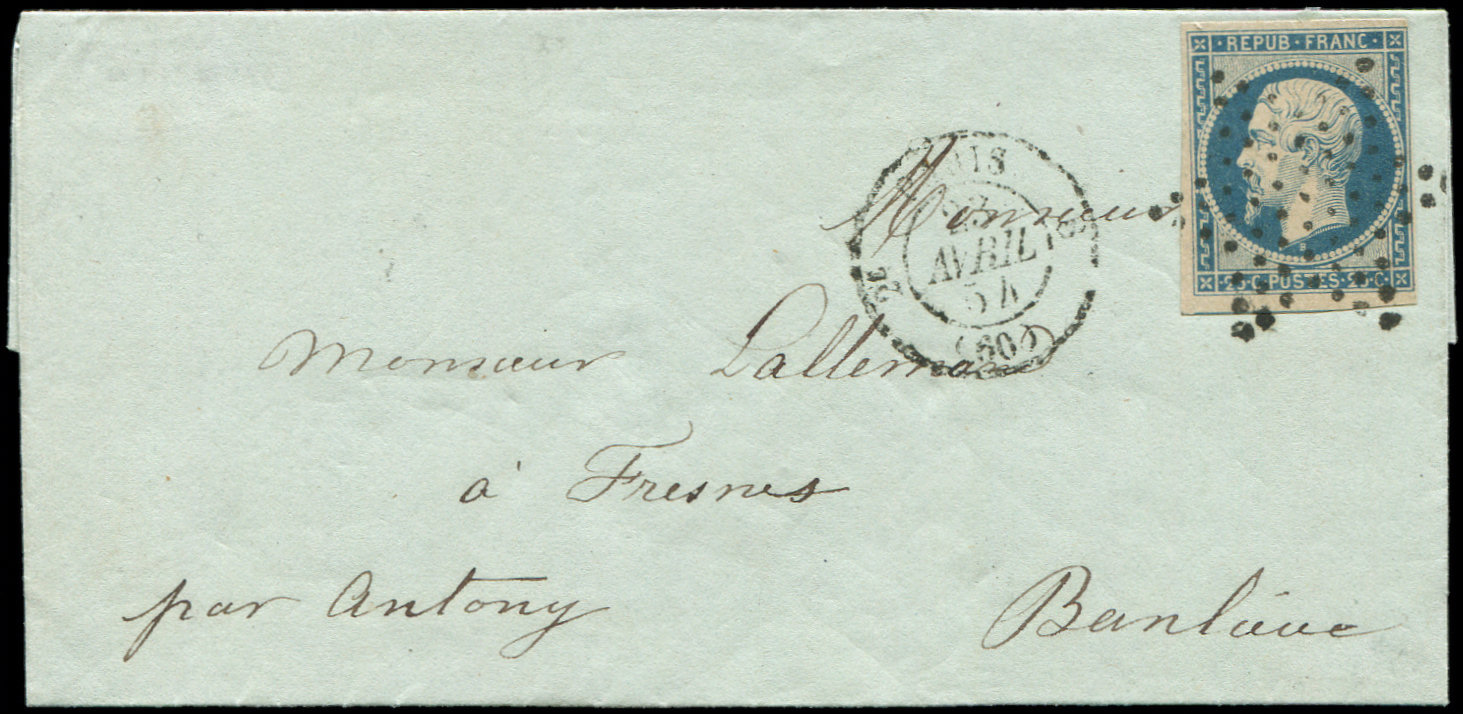 REPUB·FRANC·
B
25·C·POSTES·25·C·
AVRIL
54
(60)
Monsieur
Monsieur Lallemand
à Fresnes
par Antony
Banlieue